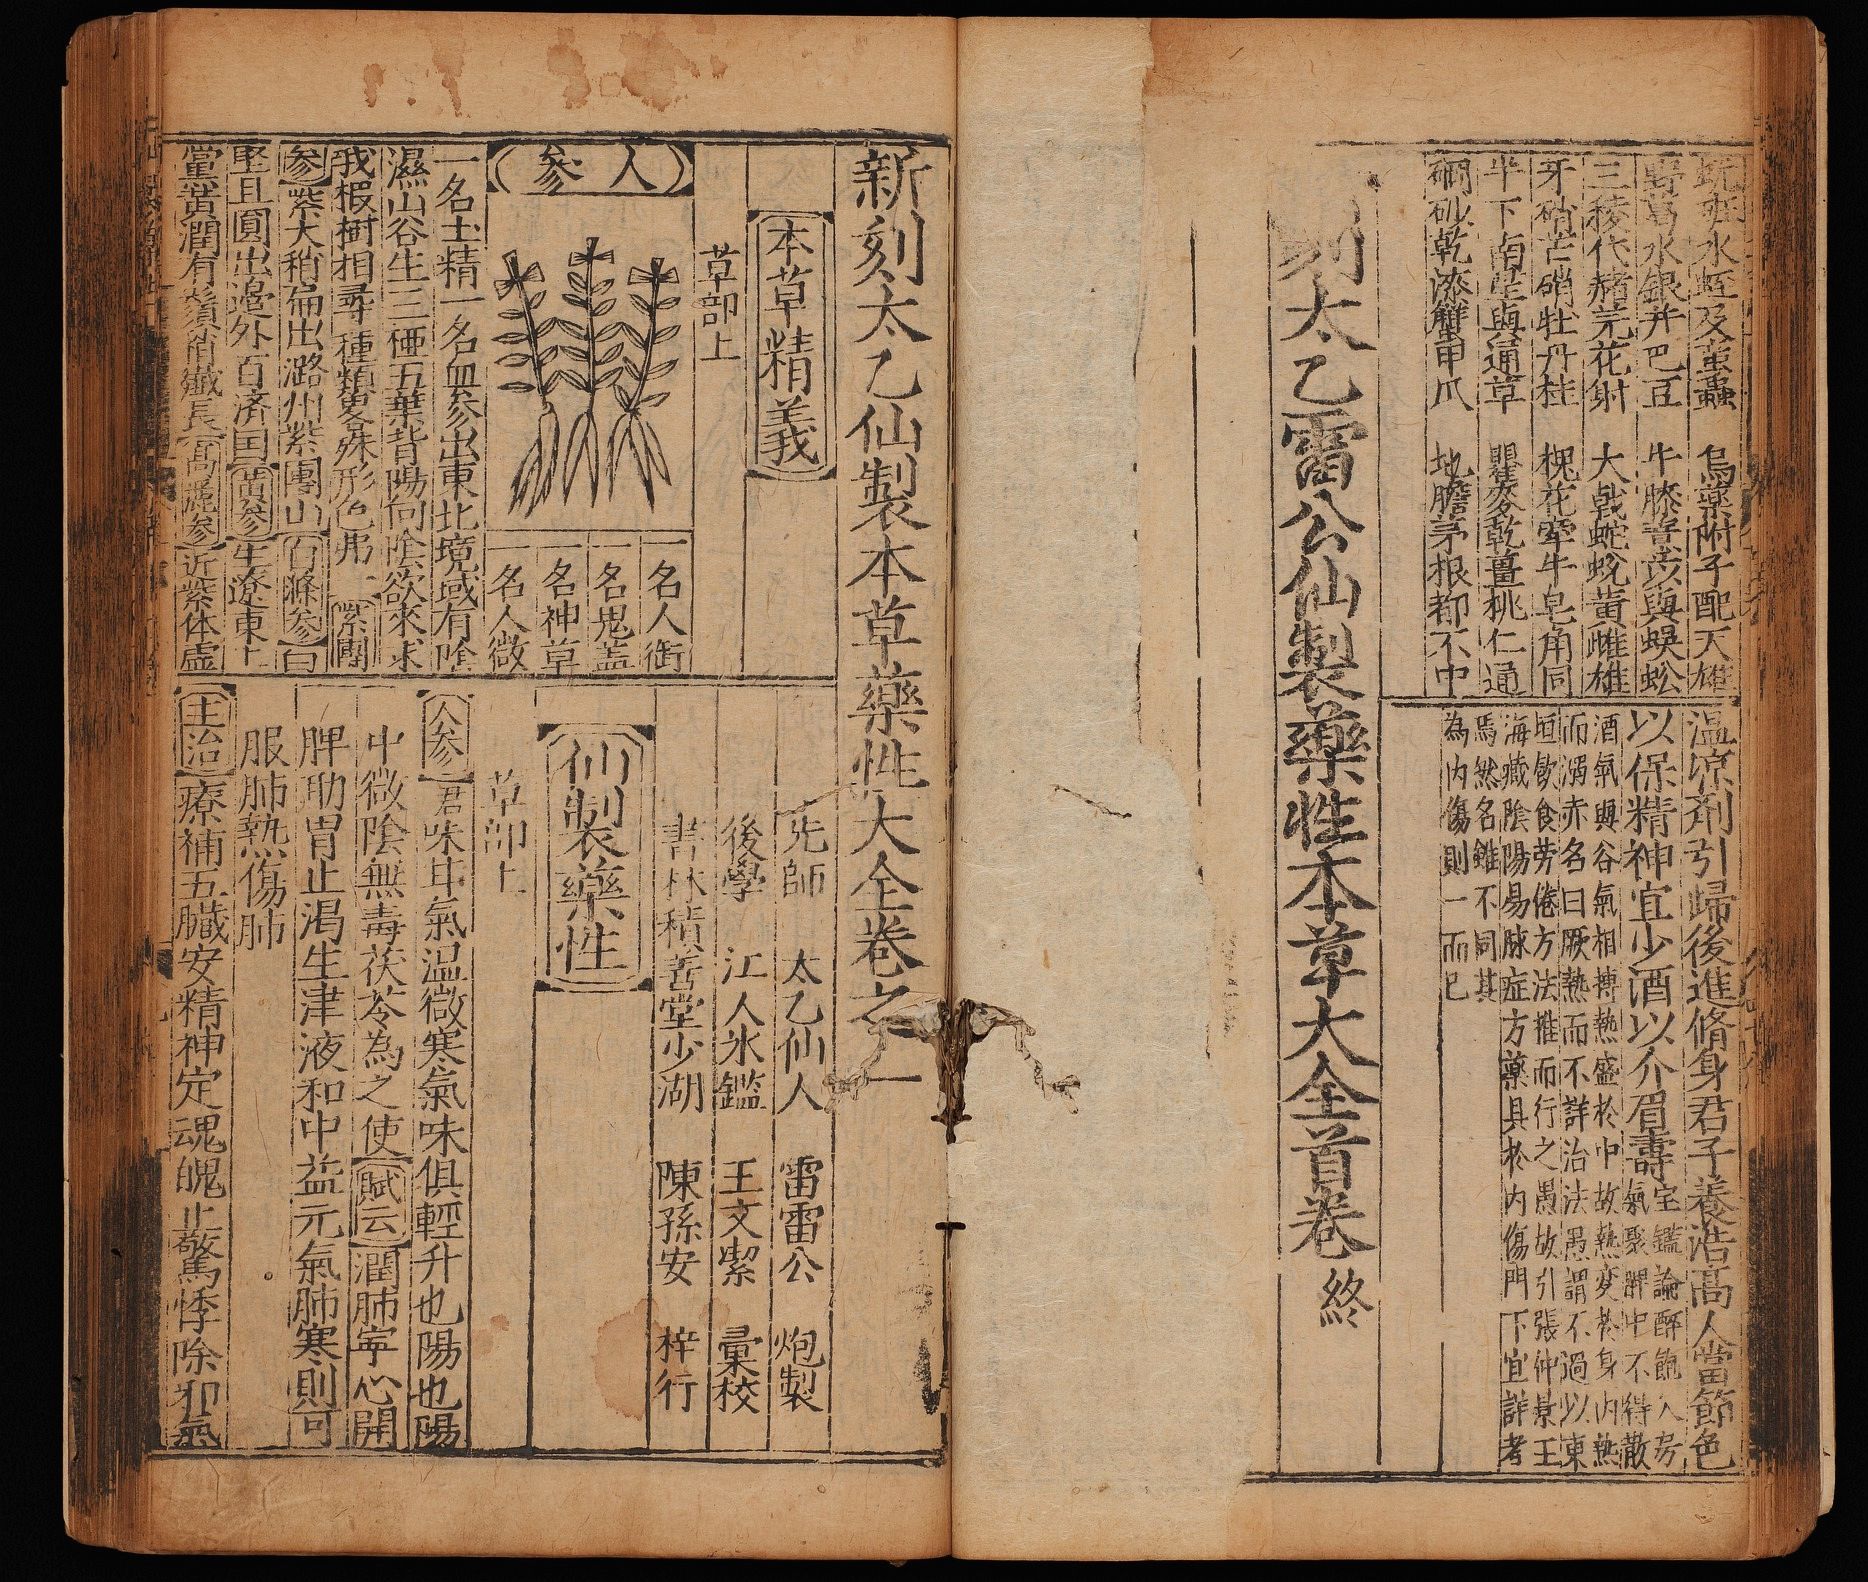 蚖斑水蛭及䖟蟲　烏藥附子配天雄
野葛水銀并巴豆　牛膝薏苡與蜈蚣
三稜代赭芫花射　大戟蛇蛻黃雌雄
牙硝芒硝牡丹桂　槐花牽牛皂角同
半下南星與通草　瞿麥乾薑桃仁通
硇砂乾漆蟹甲爪　地膽茅根都不中
温凉剤引歸後進脩身君子養浩高人當節色
以保精神宜少酒以介眉壽
宝鑑論醉飽入房
氣聚脾中不得散
酒氣與谷氣相搏熱盛於中故熱変於身内熱
而溺赤名曰厥熱而不詳治法愚謂不過以東
垣飲食劳倦方法推而行之愚故引張仲景王
海藏陰陽易脉症方藥具於内傷門下宜詳考
焉然名雖不同其
為内傷則一而已
刻太乙雷公仙製藥性本草大全首卷　終
新刻太乙仙製本草藥性大全卷之一
本草精義
草部上
人參
一名人銜
一名鬼盖
一名神草
一名人微
一名土精一名血参出東北境域有陰
濕山谷生三椏五葉背陽向陰欲來求
我椵樹相尋種類畧殊形色弗一紫團
参紫大稍扁出潞州紫團山百條参白
堅且圓出邉外百济国黄參生遼東上
黨黄潤有鬚稍纖長高麗参近紫体虚
先師　太乙仙人　雷雷公　炮製
後學　江人氷鑑　王文㓗　彙校
書林積善堂少湖　陳孫安　梓行
仙製藥性
草部上
人参君味甘氣温微寒氣味俱輕升也陽也陽
中微陰無毒茯苓為之使賦云潤肺寜心開
脾助胃止渴生津液和中益元氣肺寒則可
服肺熱傷肺
主治療補五臟安精神定魂魄止驚悸除邪氣